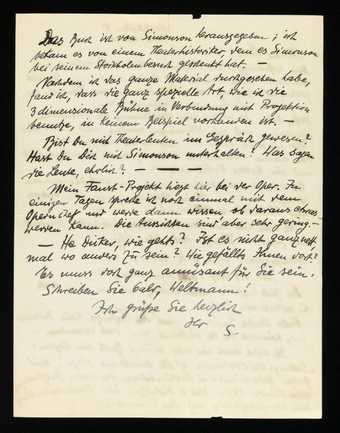 Das Buch ist von Simonson herausgegeben ; ich
bekam es von einem Theaterhistoriker, dem es Simonson
bei seinem Stockholm besuch geschenkt hat. —
Nachdem ich das ganze Material durchgesehen habe,
fand ich, dass die ganz spezielle Art, wie ich die
3 dimensionale Bühne in Verbindung mit Projektion
benutze, in keinem Beispiel vorhanden ist. —
Bist Du mit Theaterleuten im Gespräch gewesen?
Hast Du Dich mit Simonson unterhalten? Was sagen
die Leute, ehrlich? —
Mein Faust-Projekt liegt hier bei der Oper. In
einigen Tagen spreche ich noch einmal mit dem
Opernchef und werde dann wissen ob daraus etwas
werden kann. Die Aussichten sind aber sehr gering. —
— He wie gehts? Ist es nicht ganz
mal wo anders zu sein? Wie gefällts Ihnen dort?
Es muss dort ganz amüsant für Sie sein.
Schreiben Sie bald, Weltmann!
Ich grüße Sie herzlich
Ihr S